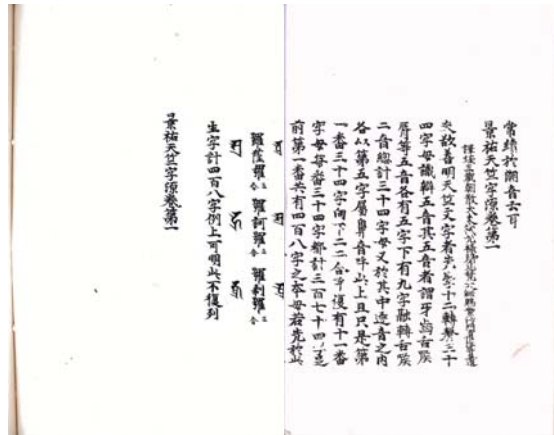 景祐天竺字源卷第一
譯經三藏朝散大夫試
夫欲善明天竺文字者先學十二轉聲三十
四字母識辯五音其五音者謂牙齒舌喉
脣等五音各有五字下有九字融轉舌喉
二音總計三十四字母又於其中逐音之內
各以第五字屬鼻音呼此上且只是第
一番三十四字向下二二合呼復有十一番
字母每番三十四字都計三百七十四
前第一番共有四百八字之本母若先於此
囉囉二合 囉訶囉二合 囉刹囉二合
生字計四百八字例上可明此不復列
景祐天竺字源卷第一